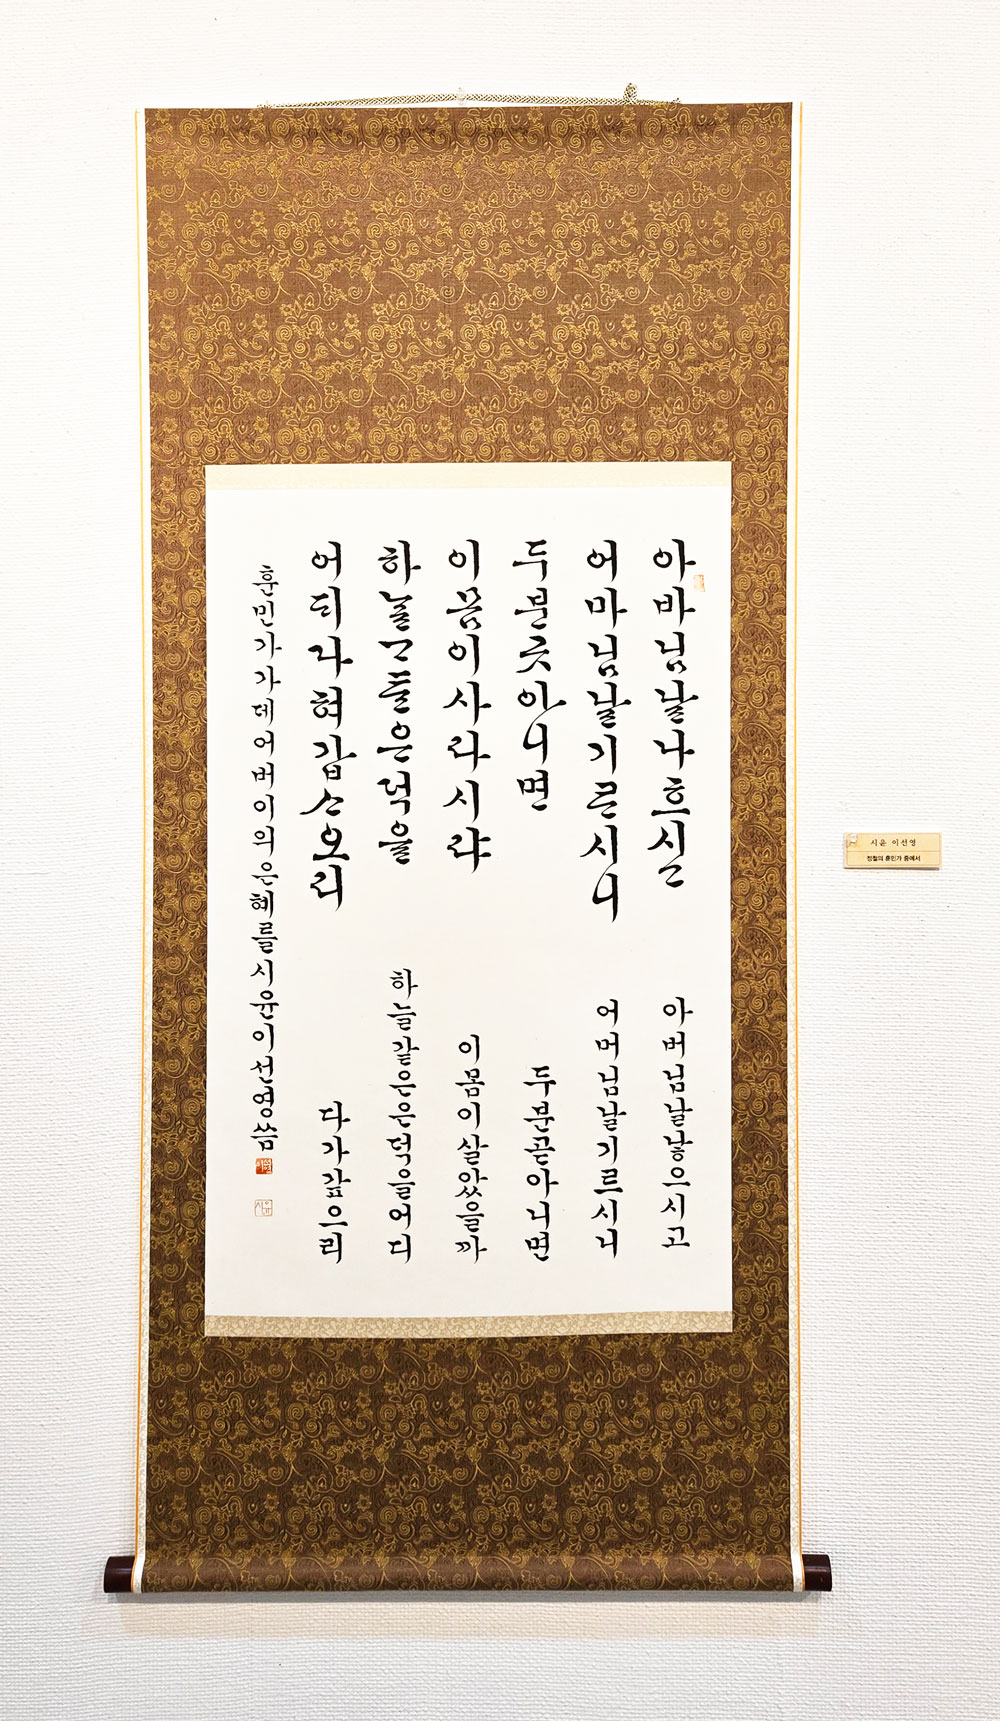 아바님날나흐시고
어마님날기르시니
두분곳아니면
이몸이사라시랴
하늘ᄀᆞ튼은덕을
어듸다혀갑ᄉᆞ오리
아버님날낳으시고
어머님날기르시니
두분곧아니면
이몸이살았을까
하늘같은은덕을어디
다가갚으리
훈민가가데어버이의은혜를시윤이선영씀
시윤 이선영
정철의 훈민가 중에서